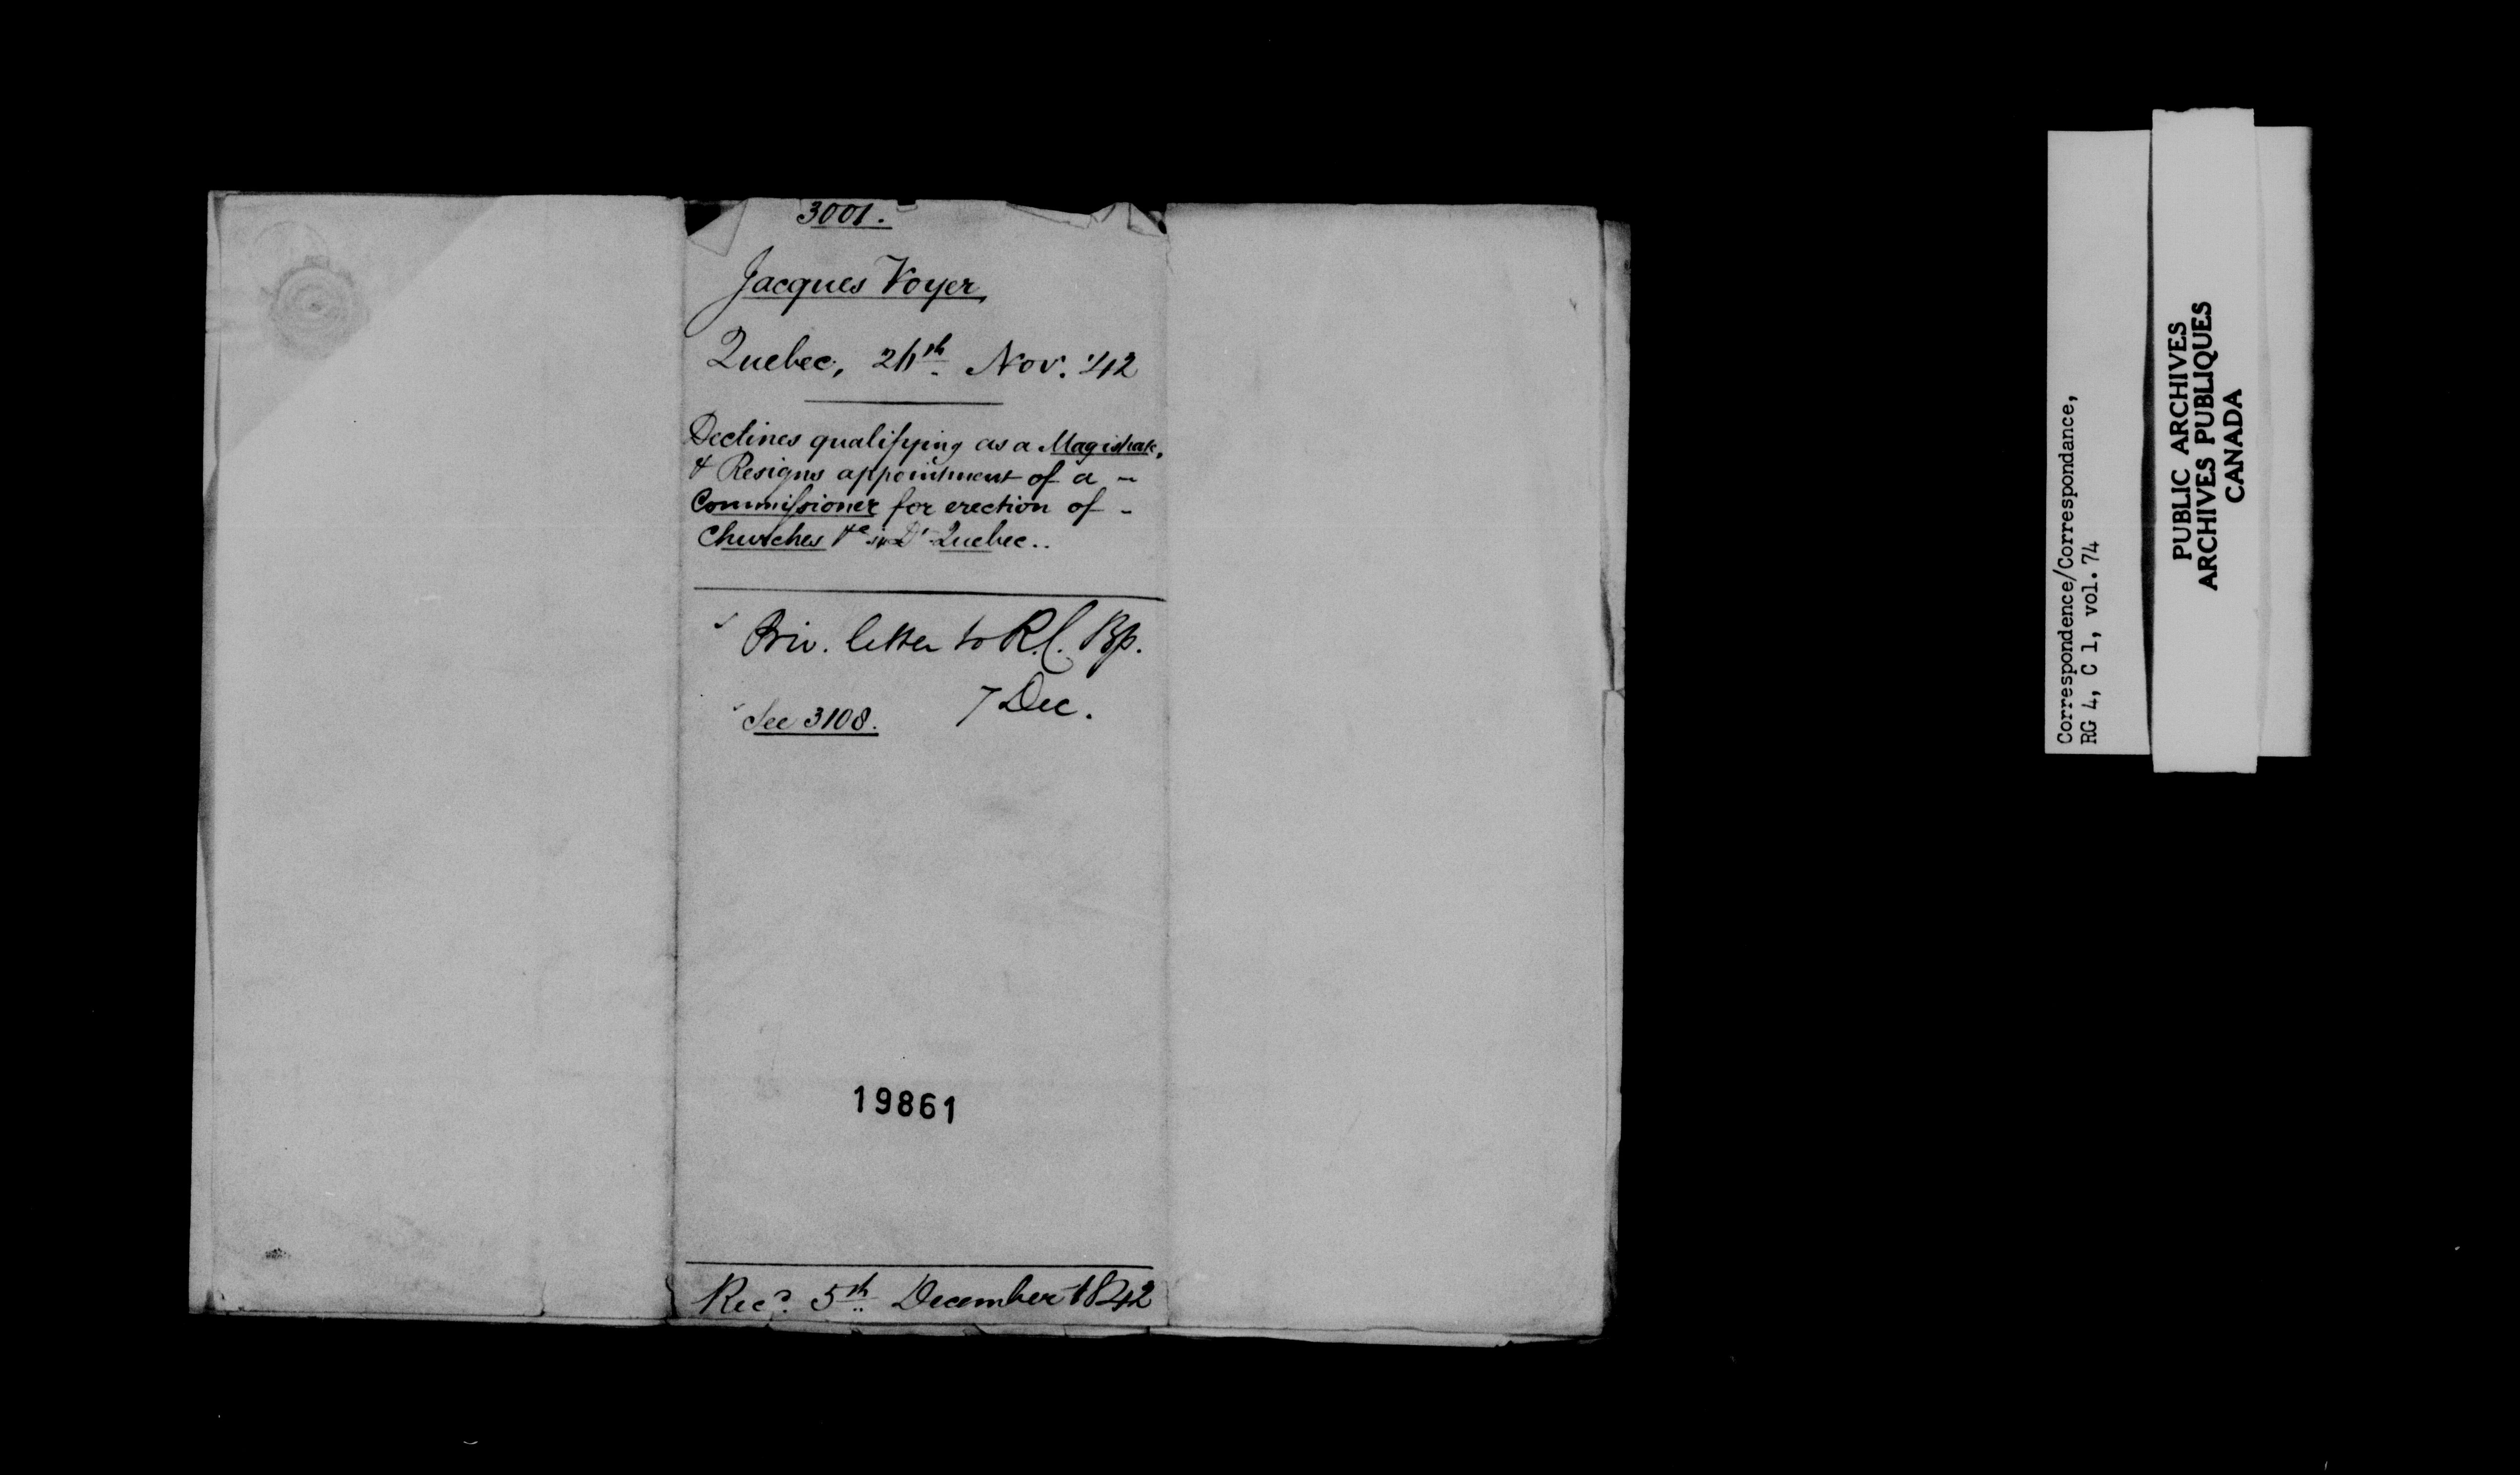 3001.
Jacques Voyer
Quebec, 24th Nov. '42
Declines qualifying as a Magistrate,
& Resigns appointment of a ~
Commissioner for erection of -
Churches &c in Dt Quebec..
Priv. letter to R.C. Bp.
7 Dec.
See 3108.
19861
Recd. 5th December 1842
Correspondence/Correspondance,
RG 4, C 1, vol. 74
PUBLIC ARCHIVES
ARCHIVES PUBLIQUES
CANADA